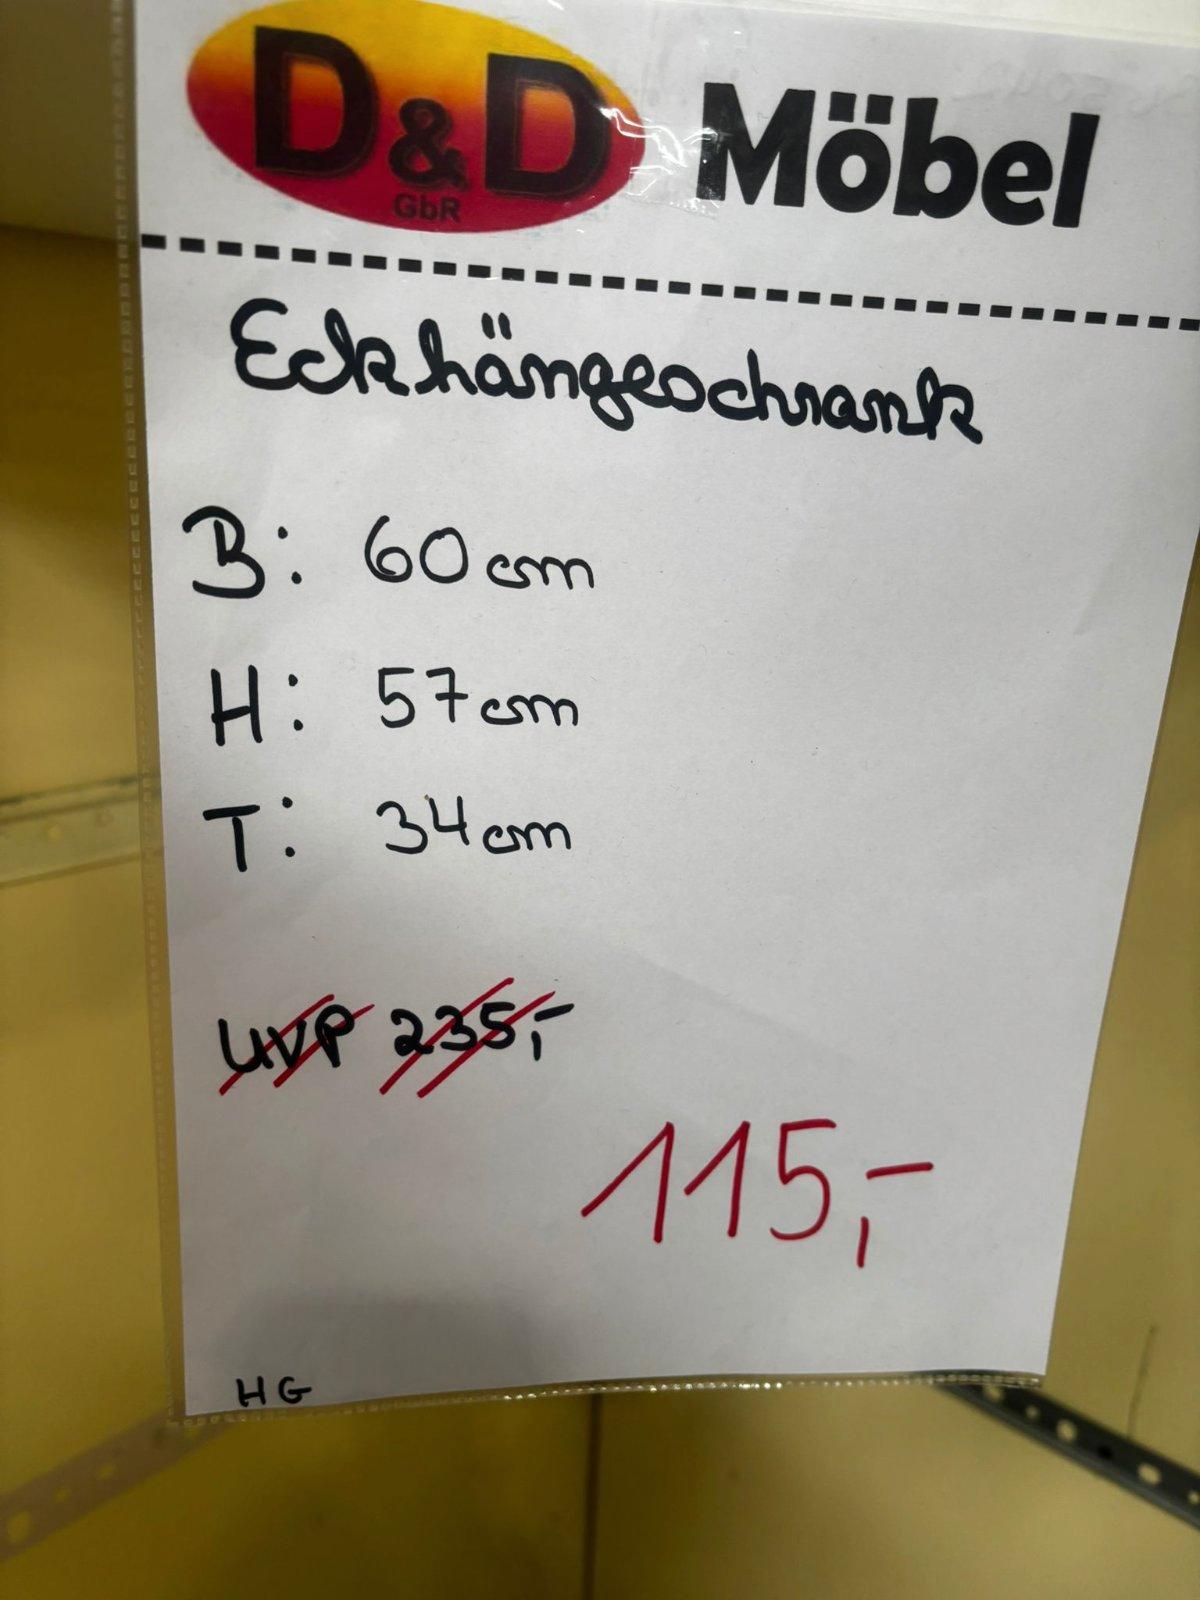 D&D Möbel
GbR
Eckhängeschrank
B: 60cm
H: 57cm
T: 34cm
UVP 235,-
115,-
HG